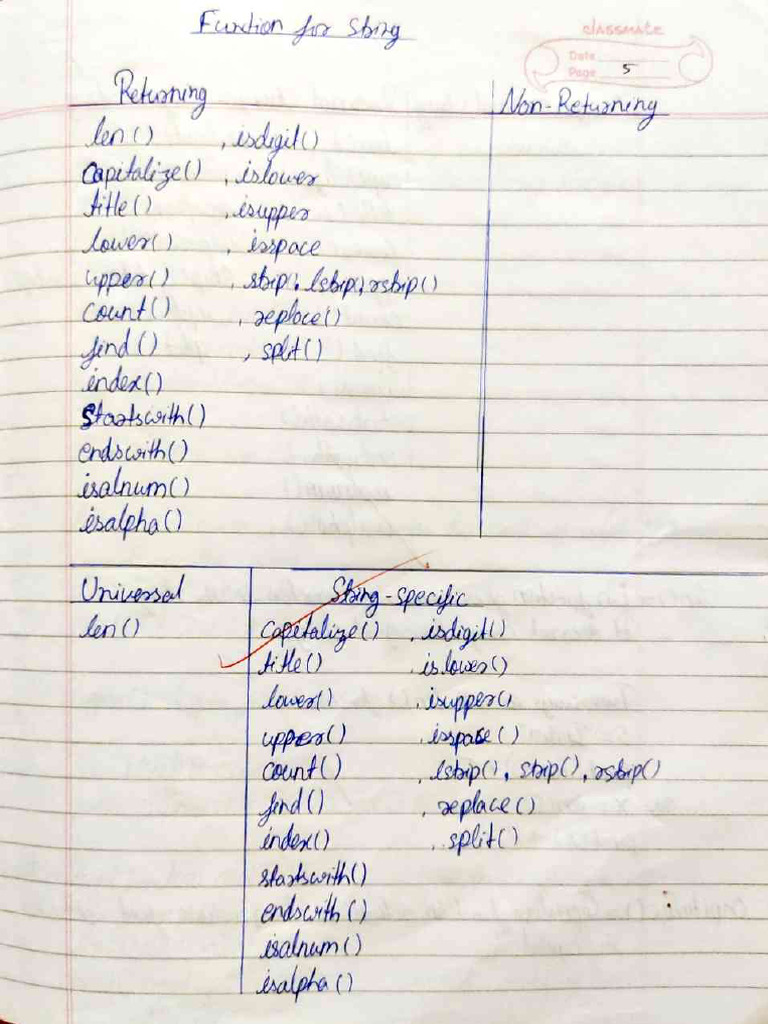 Function for String
classmate
Date
Page 5
Returning Non-Returning
len() , isdigit()
capitalize() , islower
title() , isupper
lower() , isspace
upper() , strip(), lstrip(), rstrip()
count() , replace()
find() , split()
index()
startswith()
endswith()
isalnum()
isalpha()
Universal String-specific
len() capetalize() , isdigit()
title() islower()
lower() , isupper()
upper() , isspace()
count() , lstrip(), strip(), rstrip()
find() , replace()
index() , split()
startswith()
endswith()
isalnum()
isalpha()